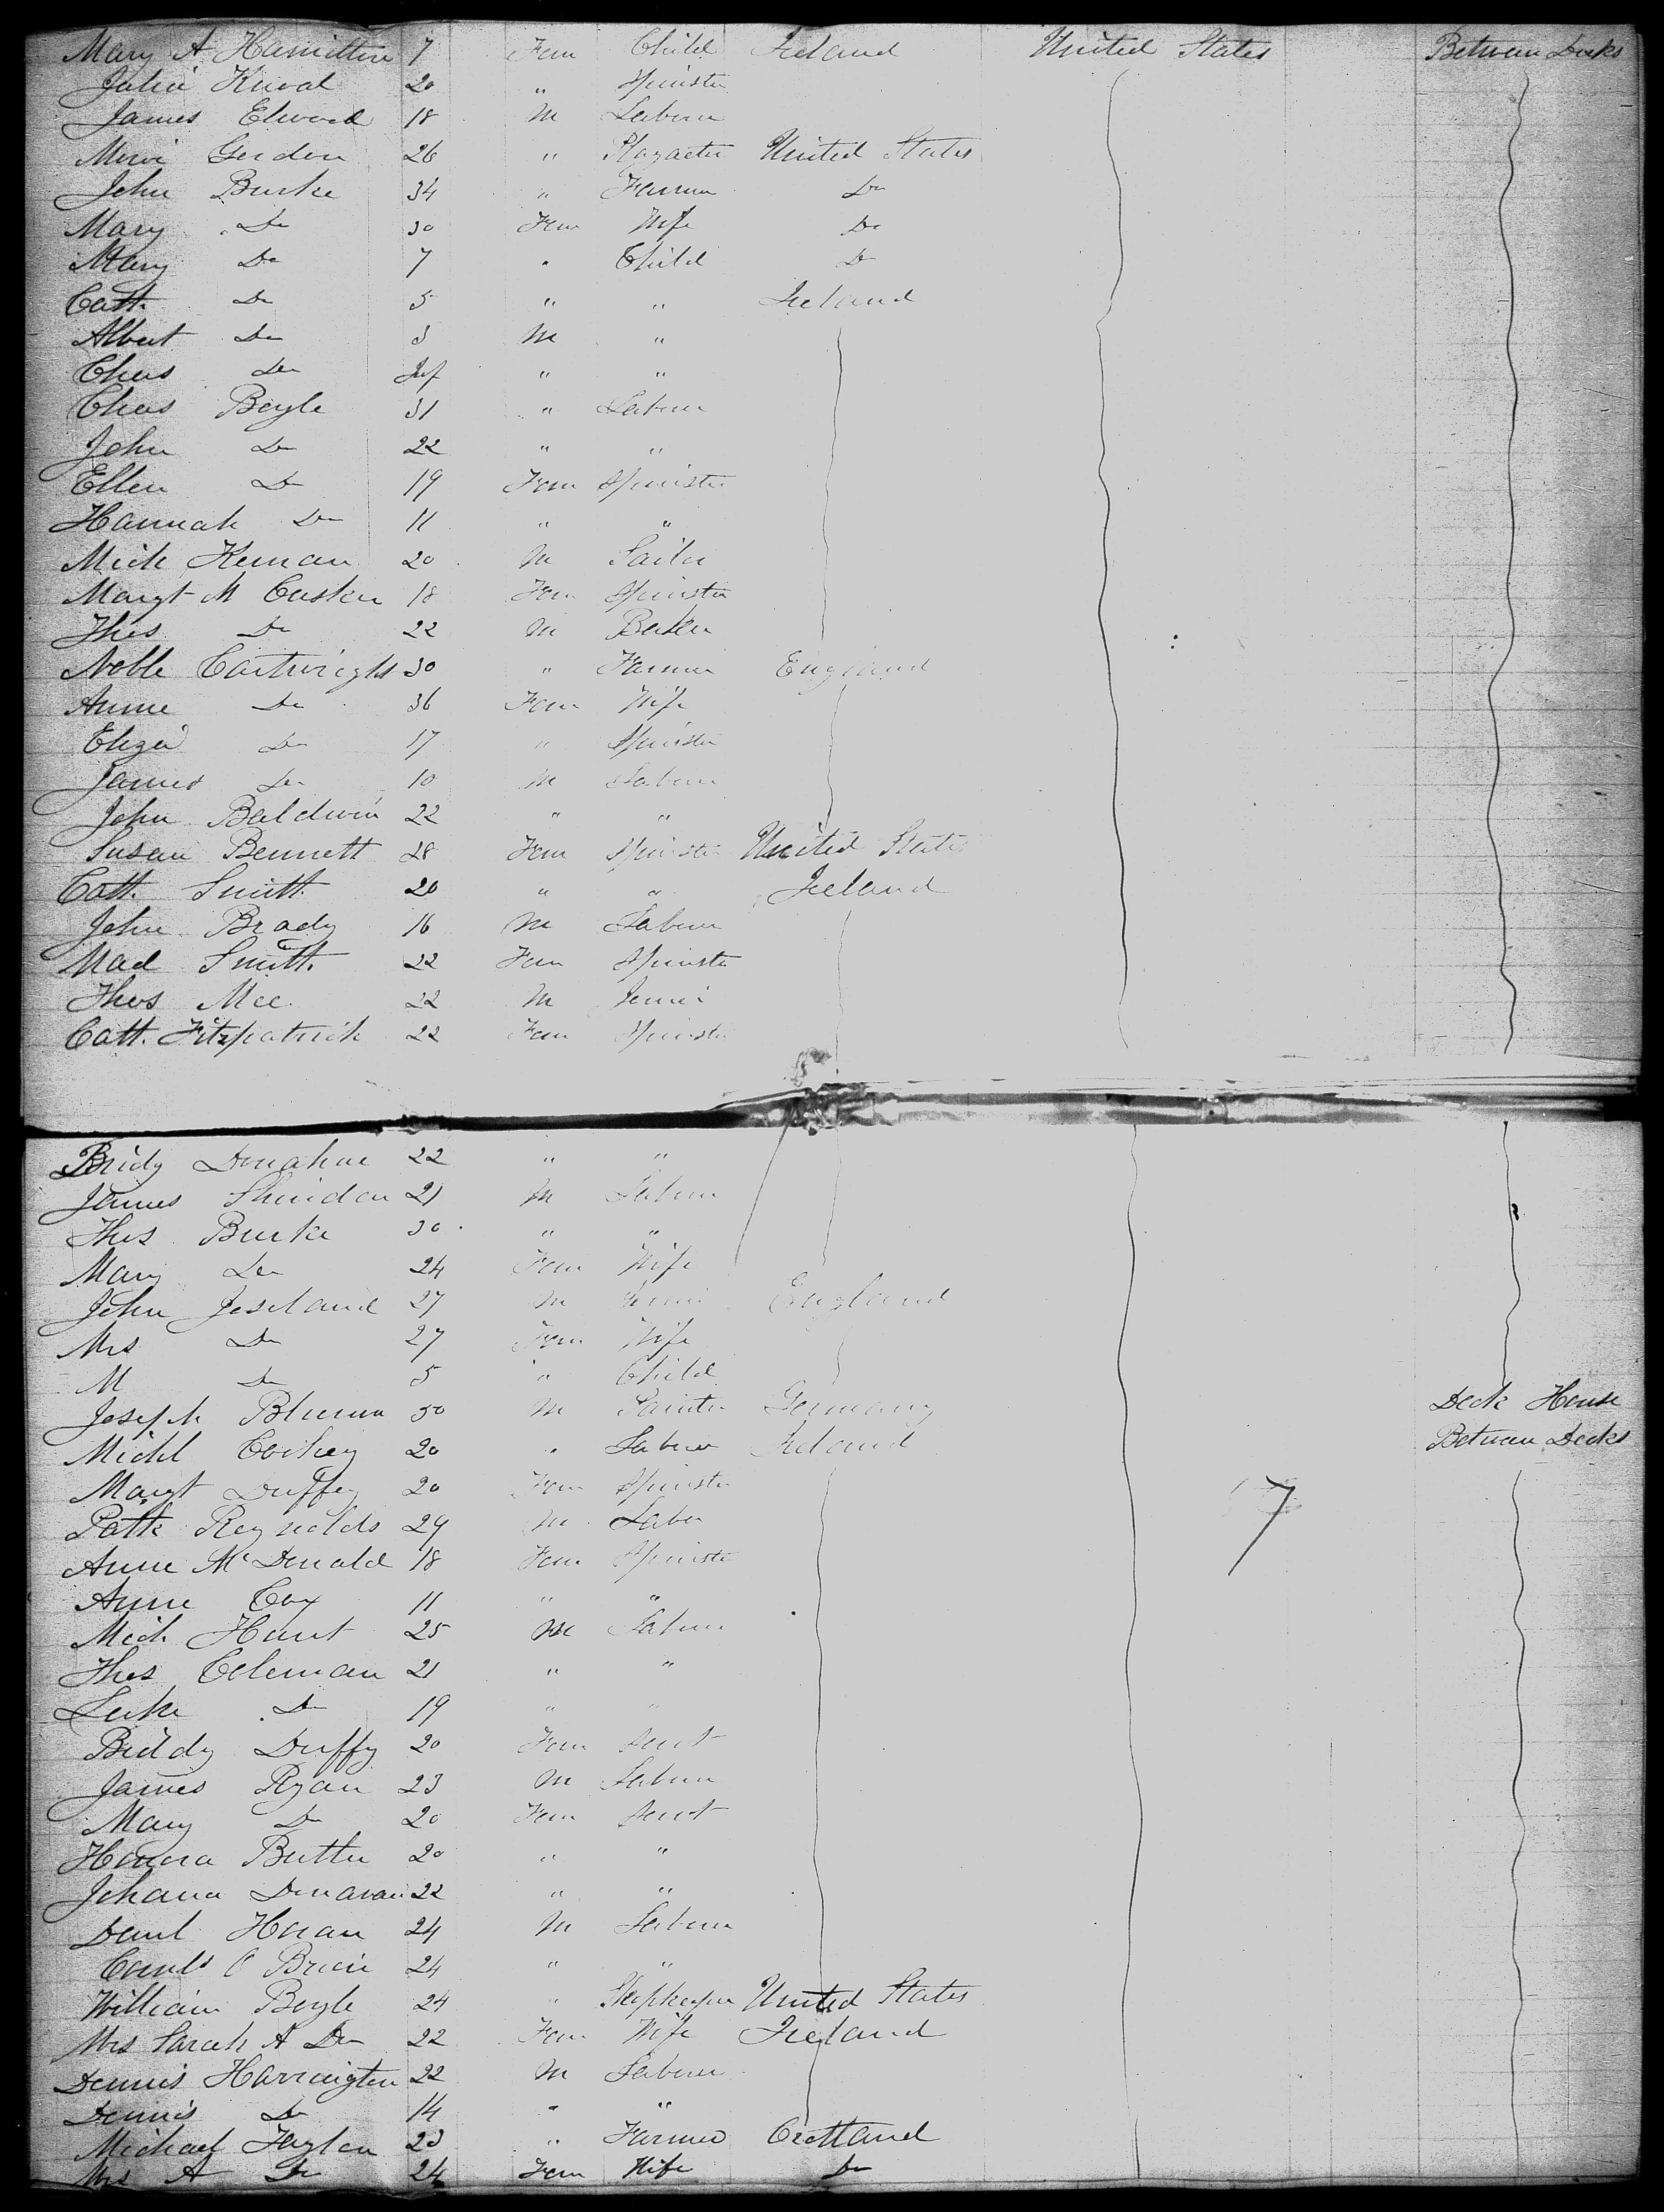 Mary A Hamilton 7 Fem Child Ireland United States Between Decks
Julia 20 " Spinster
James Elwood 18 M Laborer
Gordon 26 " United States
John Burke 34 " Farmer Do
Mary Do 30 Fem Wife Do
Mary Do 7 " Child Do
Cath. Do 5 " " Ireland
Albert Do 3 M "
Chas Do Inf " "
Chas Boyle 31 " Laborer
John Do 22 " "
Ellen Do 19 Fem Spinster
Hannah Do 11 " "
Mich Kernan 20 M Sailor
Margt M Cusker 18 Fem Spinster
Thos Do 22 M Baker
Noble Cartwright 30 " Farmer England
Anne Do 36 Fem Wife
Eliza Do 17 " Spinster
James Do 10 M Laborer
John Baldwin 22 " "
Susan Bennett 28 Fem Spinster United States
Cath. Smith 20 " " Ireland
John Brady 16 M Laborer
Mad Smith 22 Fem Spinster
Thos Mee 22 M
Cath. Fitzpatrick 22 Fem Spinster
Bridy Donahoe 22 " "
James Sheridan 21 M Laborer
Thos Burke 30 " "
Mary Do 24 Fem Wife
John 27 M England
Mrs Do 27 Fem Wife
M Do 5 " Child
Joseph 50 M Painter Germany Deck House
Michl 20 " Laborer Ireland Between Decks
Margt Duffey 20 Fem Spinster
Patk Reynolds 29 M Labor 7
Anne McDonald 18 Fem Spinster
Anne Coy 11 " "
Mich Hunt 25 M Laborer
Thos Coleman 21 " "
Luke Do 19 " "
Biddy Duffy 20 Fem Servt
James Ryan 23 M Laborer
Mary Do 20 Fem Servt
Honora Butler 20 " "
Johana Donavan 22 " "
Danl Horan 24 M Laborer
O Brien 24 " "
William Boyle 24 " Shopkeeper United States
Mrs Sarah A Do 22 Fem Wife Ireland
Dennis Harrington 22 M Laborer
Dennis Do 14 " "
Michael 23 " Farmer Scotland
Mrs A Do 24 Fem Wife Do